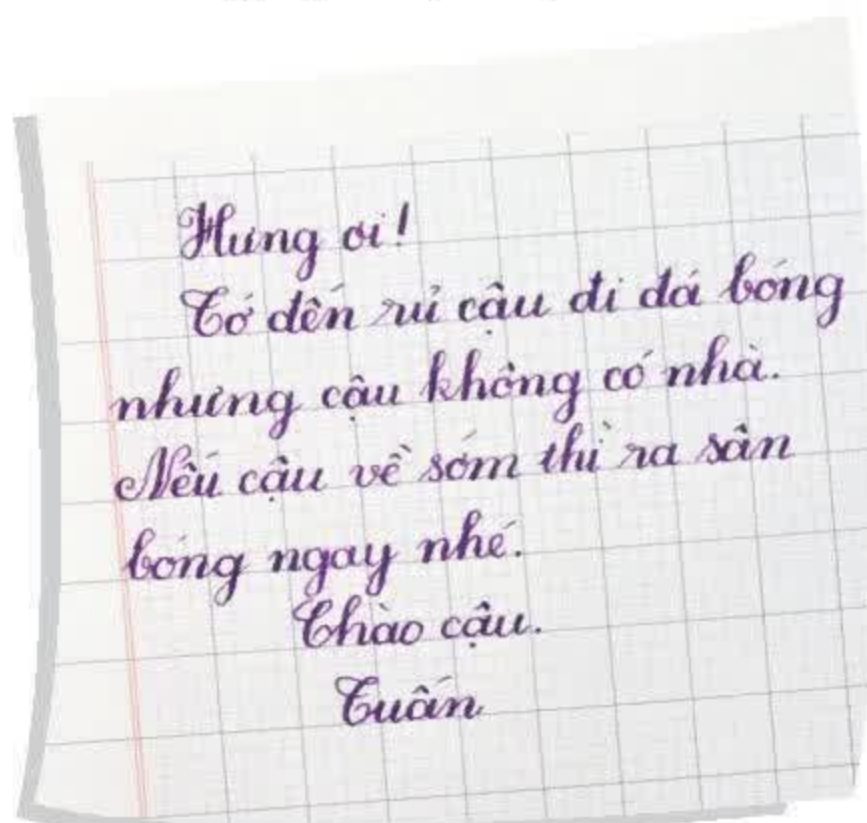 Hưng ơi!
Tớ đến rủ cậu đi đá bóng
nhưng cậu không có nhà.
Nếu cậu về sớm thì ra sân
bóng ngay nhé.
Chào cậu.
Tuấn